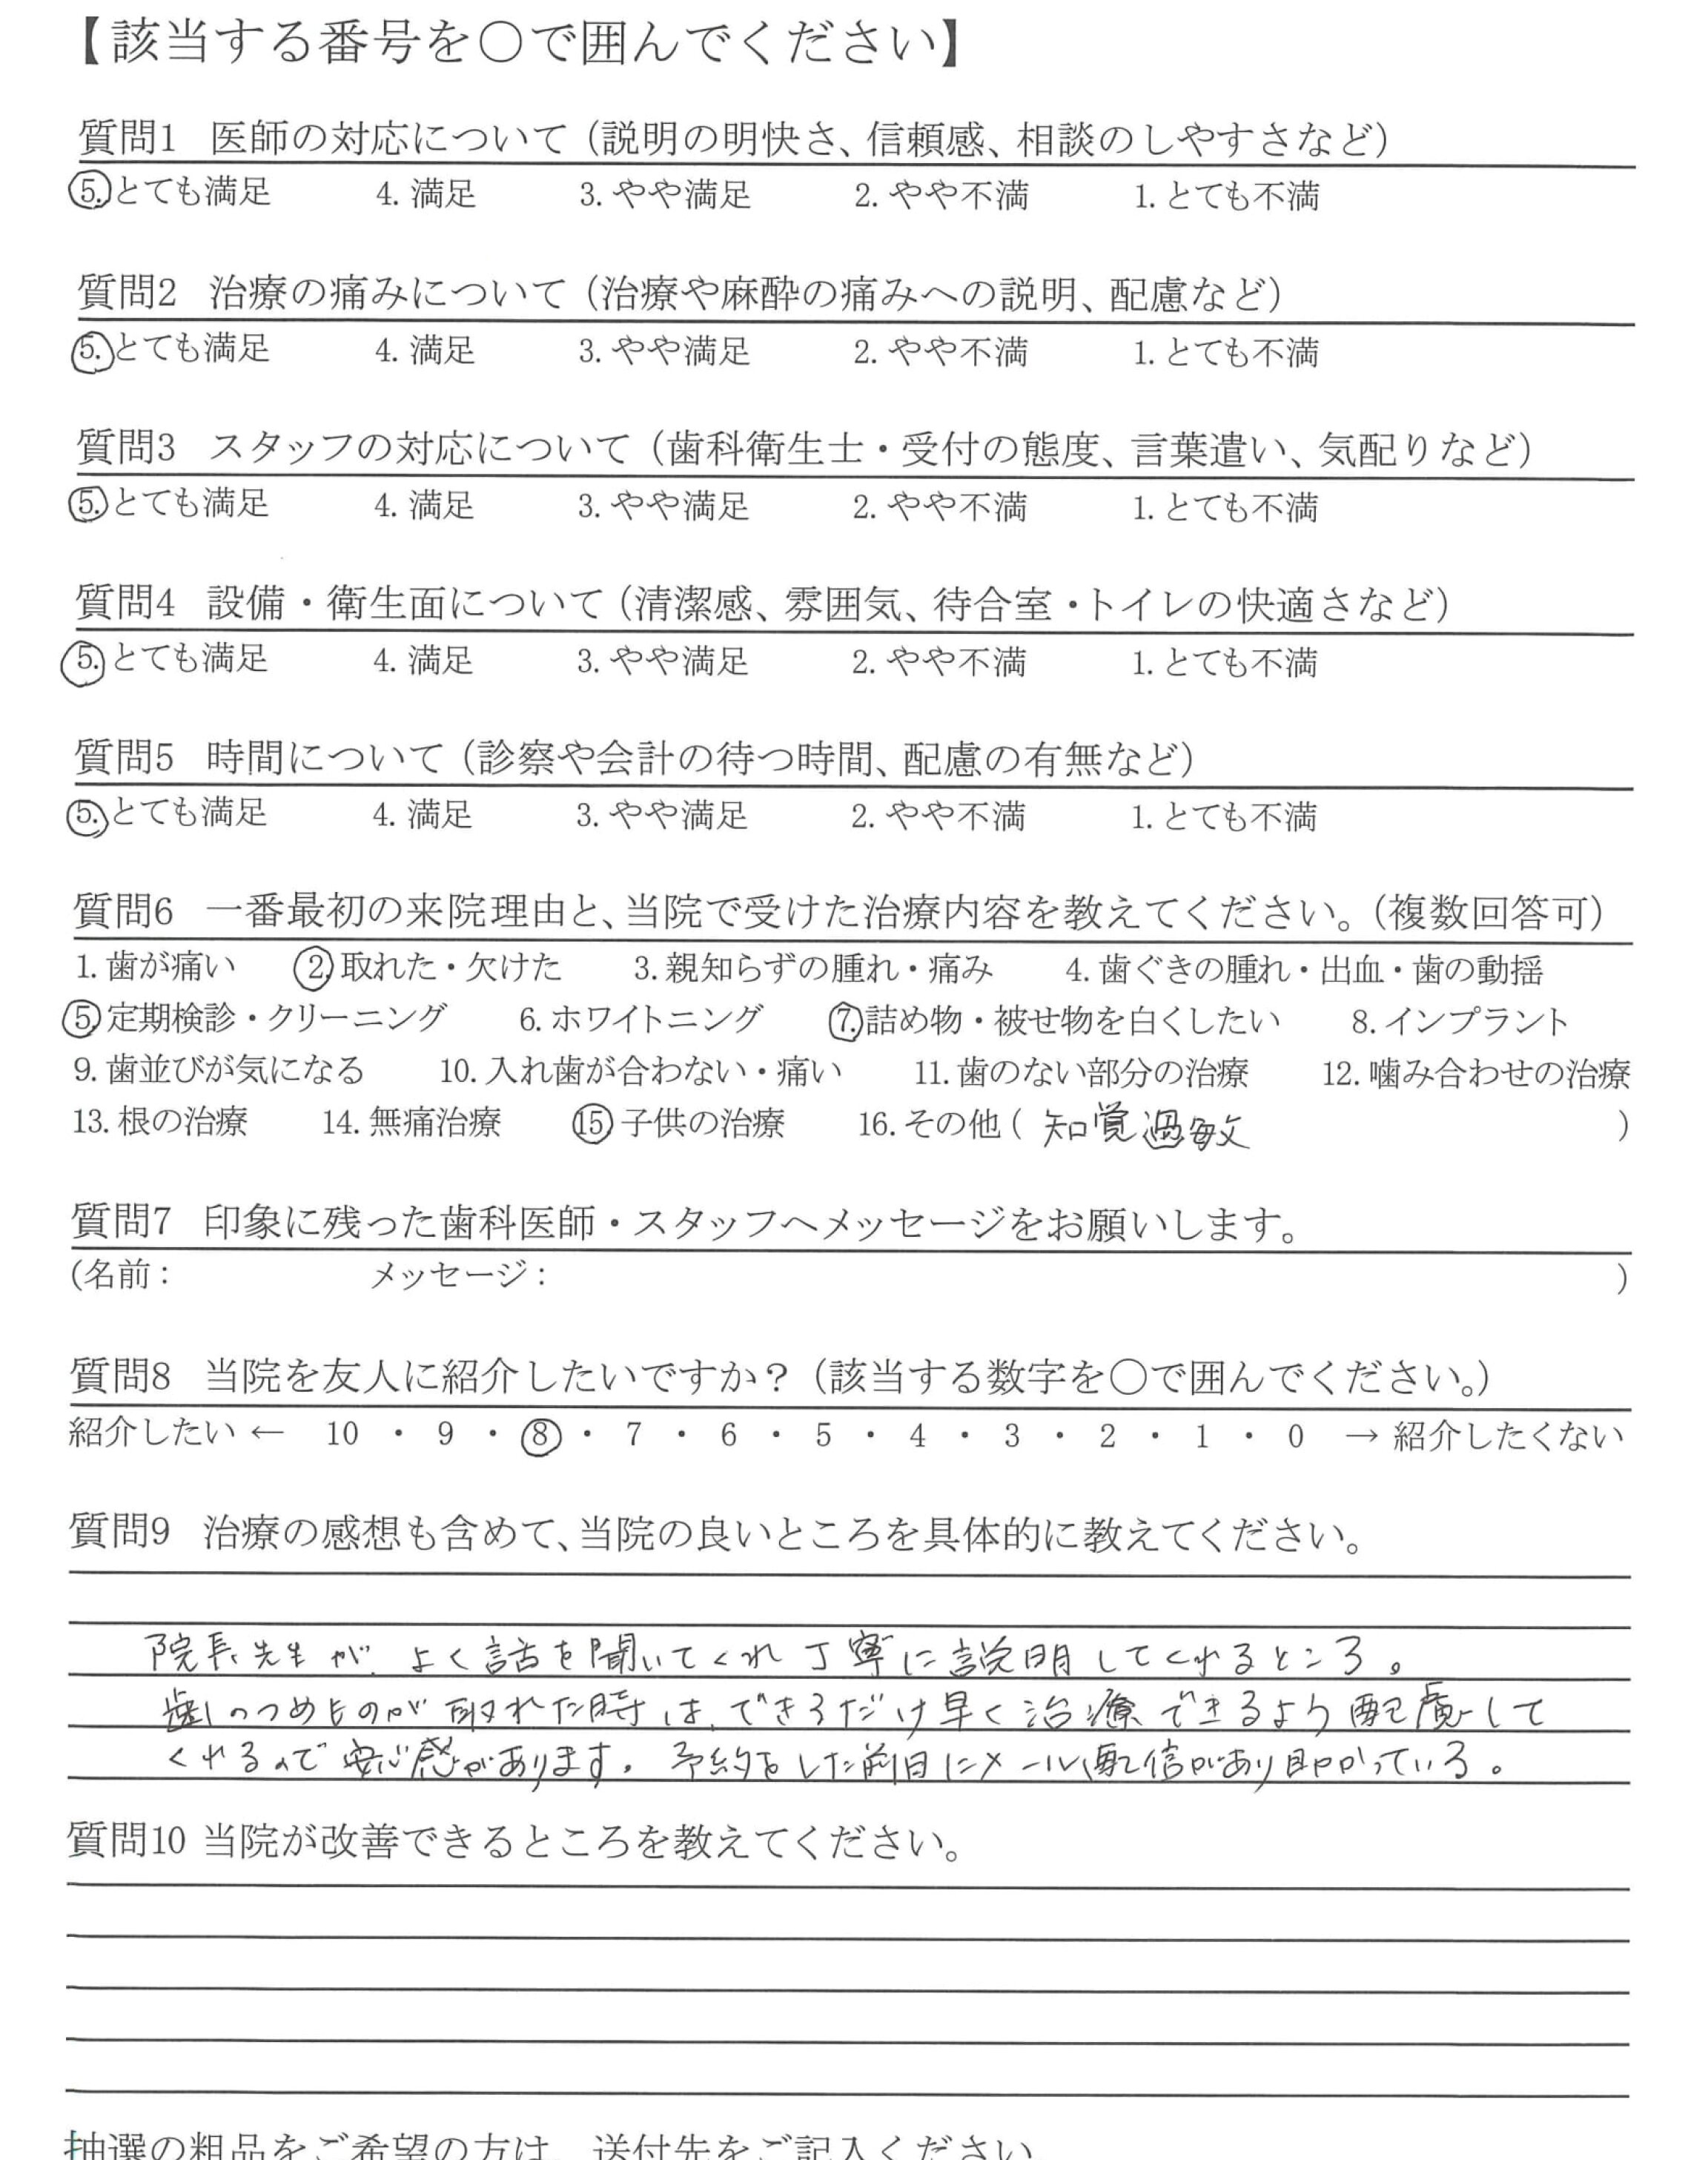 【該当する番号を〇で囲んでください】
質問1 医師の対応について（説明の明快さ、信頼感、相談のしやすさなど）
5.とても満足 4. 満足 3. やや満足 2. やや不満 1. とても不満
質問2 治療の痛みについて（治療や麻酔の痛みへの説明、配慮など）
5.とても満足 4. 満足 3. やや満足 2. やや不満 1. とても不満
質問3 スタッフの対応について（歯科衛生士・受付の態度、言葉遣い、気配りなど）
5.とても満足 4. 満足 3. やや満足 2. やや不満 1. とても不満
質問4 設備・衛生面について（清潔感、雰囲気、待合室・トイレの快適さなど）
5.とても満足 4. 満足 3. やや満足 2. やや不満 1. とても不満
質問5 時間について（診察や会計の待つ時間、配慮の有無など）
5.とても満足 4. 満足 3. やや満足 2. やや不満 1. とても不満
質問6 一番最初の来院理由と、当院で受けた治療内容を教えてください。（複数回答可）
1. 歯が痛い 2.取れた・欠けた 3. 親知らずの腫れ・痛み 4. 歯ぐきの腫れ・出血・歯の動揺
5.定期検診・クリーニング 6. ホワイトニング 7.詰め物・被せ物を白くしたい 8. インプラント
9. 歯並びが気になる 10. 入れ歯が合わない・痛い 11. 歯のない部分の治療 12. 噛み合わせの治療
13. 根の治療 14. 無痛治療 15.子供の治療 16. その他（ 知覚過敏 ）
質問7 印象に残った歯科医師・スタッフへメッセージをお願いします。
(名前： メッセージ： )
質問8 当院を友人に紹介したいですか？（該当する数字を〇で囲んでください。）
紹介したい ← 10 ・ 9 ・ 8 ・ 7 ・ 6 ・ 5 ・ 4 ・ 3 ・ 2 ・ 1 ・ 0 → 紹介したくない
質問9 治療の感想も含めて、当院の良いところを具体的に教えてください。
院長先生が、よく話を聞いてくれ丁寧に説明してくれるところ。
歯のつめものが取れた時は、できるだけ早く治療できるよう配慮して
くれるので安心感があります。予約をした前日にメール配信があり助かっている。
質問10 当院が改善できるところを教えてください。
抽選の粗品をご希望の方は、送付先をご記入ください